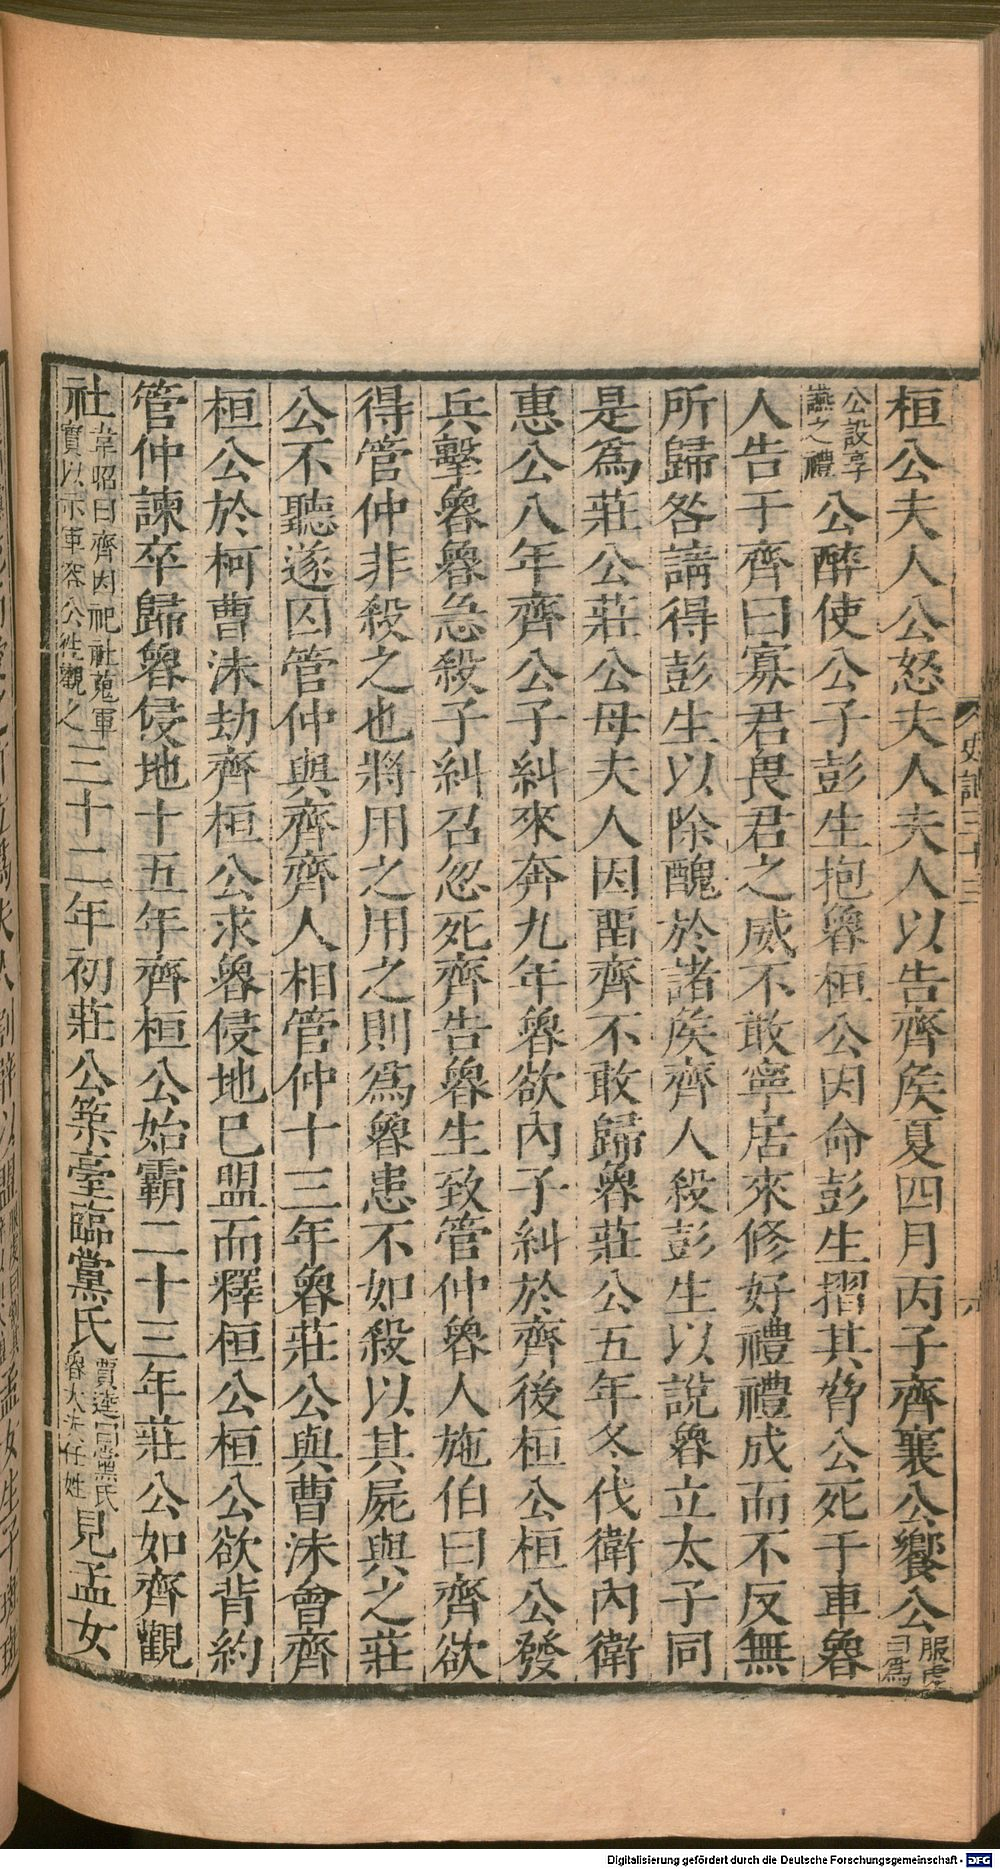 桓公夫人公怒夫人夫人以告齊矦夏四月丙子齊襄公饗公服虔曰爲
公設享讌之禮公醉使公子彭生抱魯桓公因命彭生摺其脅公死于車魯
人告于齊曰寡君畏君之威不敢寧居來修好禮禮成而不反無
所歸咎請得彭生以除醜於諸矦齊人殺彭生以說魯立太子同
是爲莊公莊公母夫人因畱齊不敢歸魯莊公五年冬伐衛內衛
惠公八年齊公子糾來奔九年魯欲內子糾於齊後桓公桓公發
兵擊魯魯急殺子糾召忽死齊告魯生致管仲魯人施伯曰齊欲
得管仲非殺之也將用之用之則爲魯患不如殺以其屍與之莊
公不聽遂囚管仲與齊齊人相管仲十三年魯莊公與曹沬會齊
桓公於柯曹沬劫齊桓公求魯侵地已盟而釋桓公桓公欲背約
管仲諫卒歸魯侵地十五年齊桓公始霸二十三年莊公如齊觀
社韋昭曰齊因祀社蒐軍實以示軍容公往觀之三十二年初莊公築臺臨黨氏賈逵曰黨氏魯大夫任姓見孟女
史記三十三
六
Digitalisierung gefördert durch die Deutsche Forschungsgemeinschaft - DFG